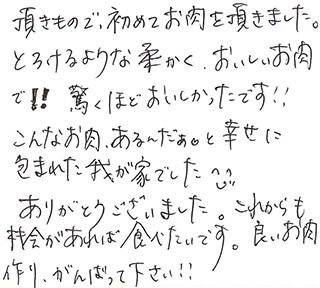 頂きもので、初めてお肉を頂きました。
とろけるような柔かく、おいしいお肉
で!! 驚くほどおいしかったです!!
こんなお肉、あるんだぁ。と幸せに
包まれた我が家でした
ありがとうございました。これからも
機会があれば食べたいです。良いお肉
作り、がんばって下さい!!